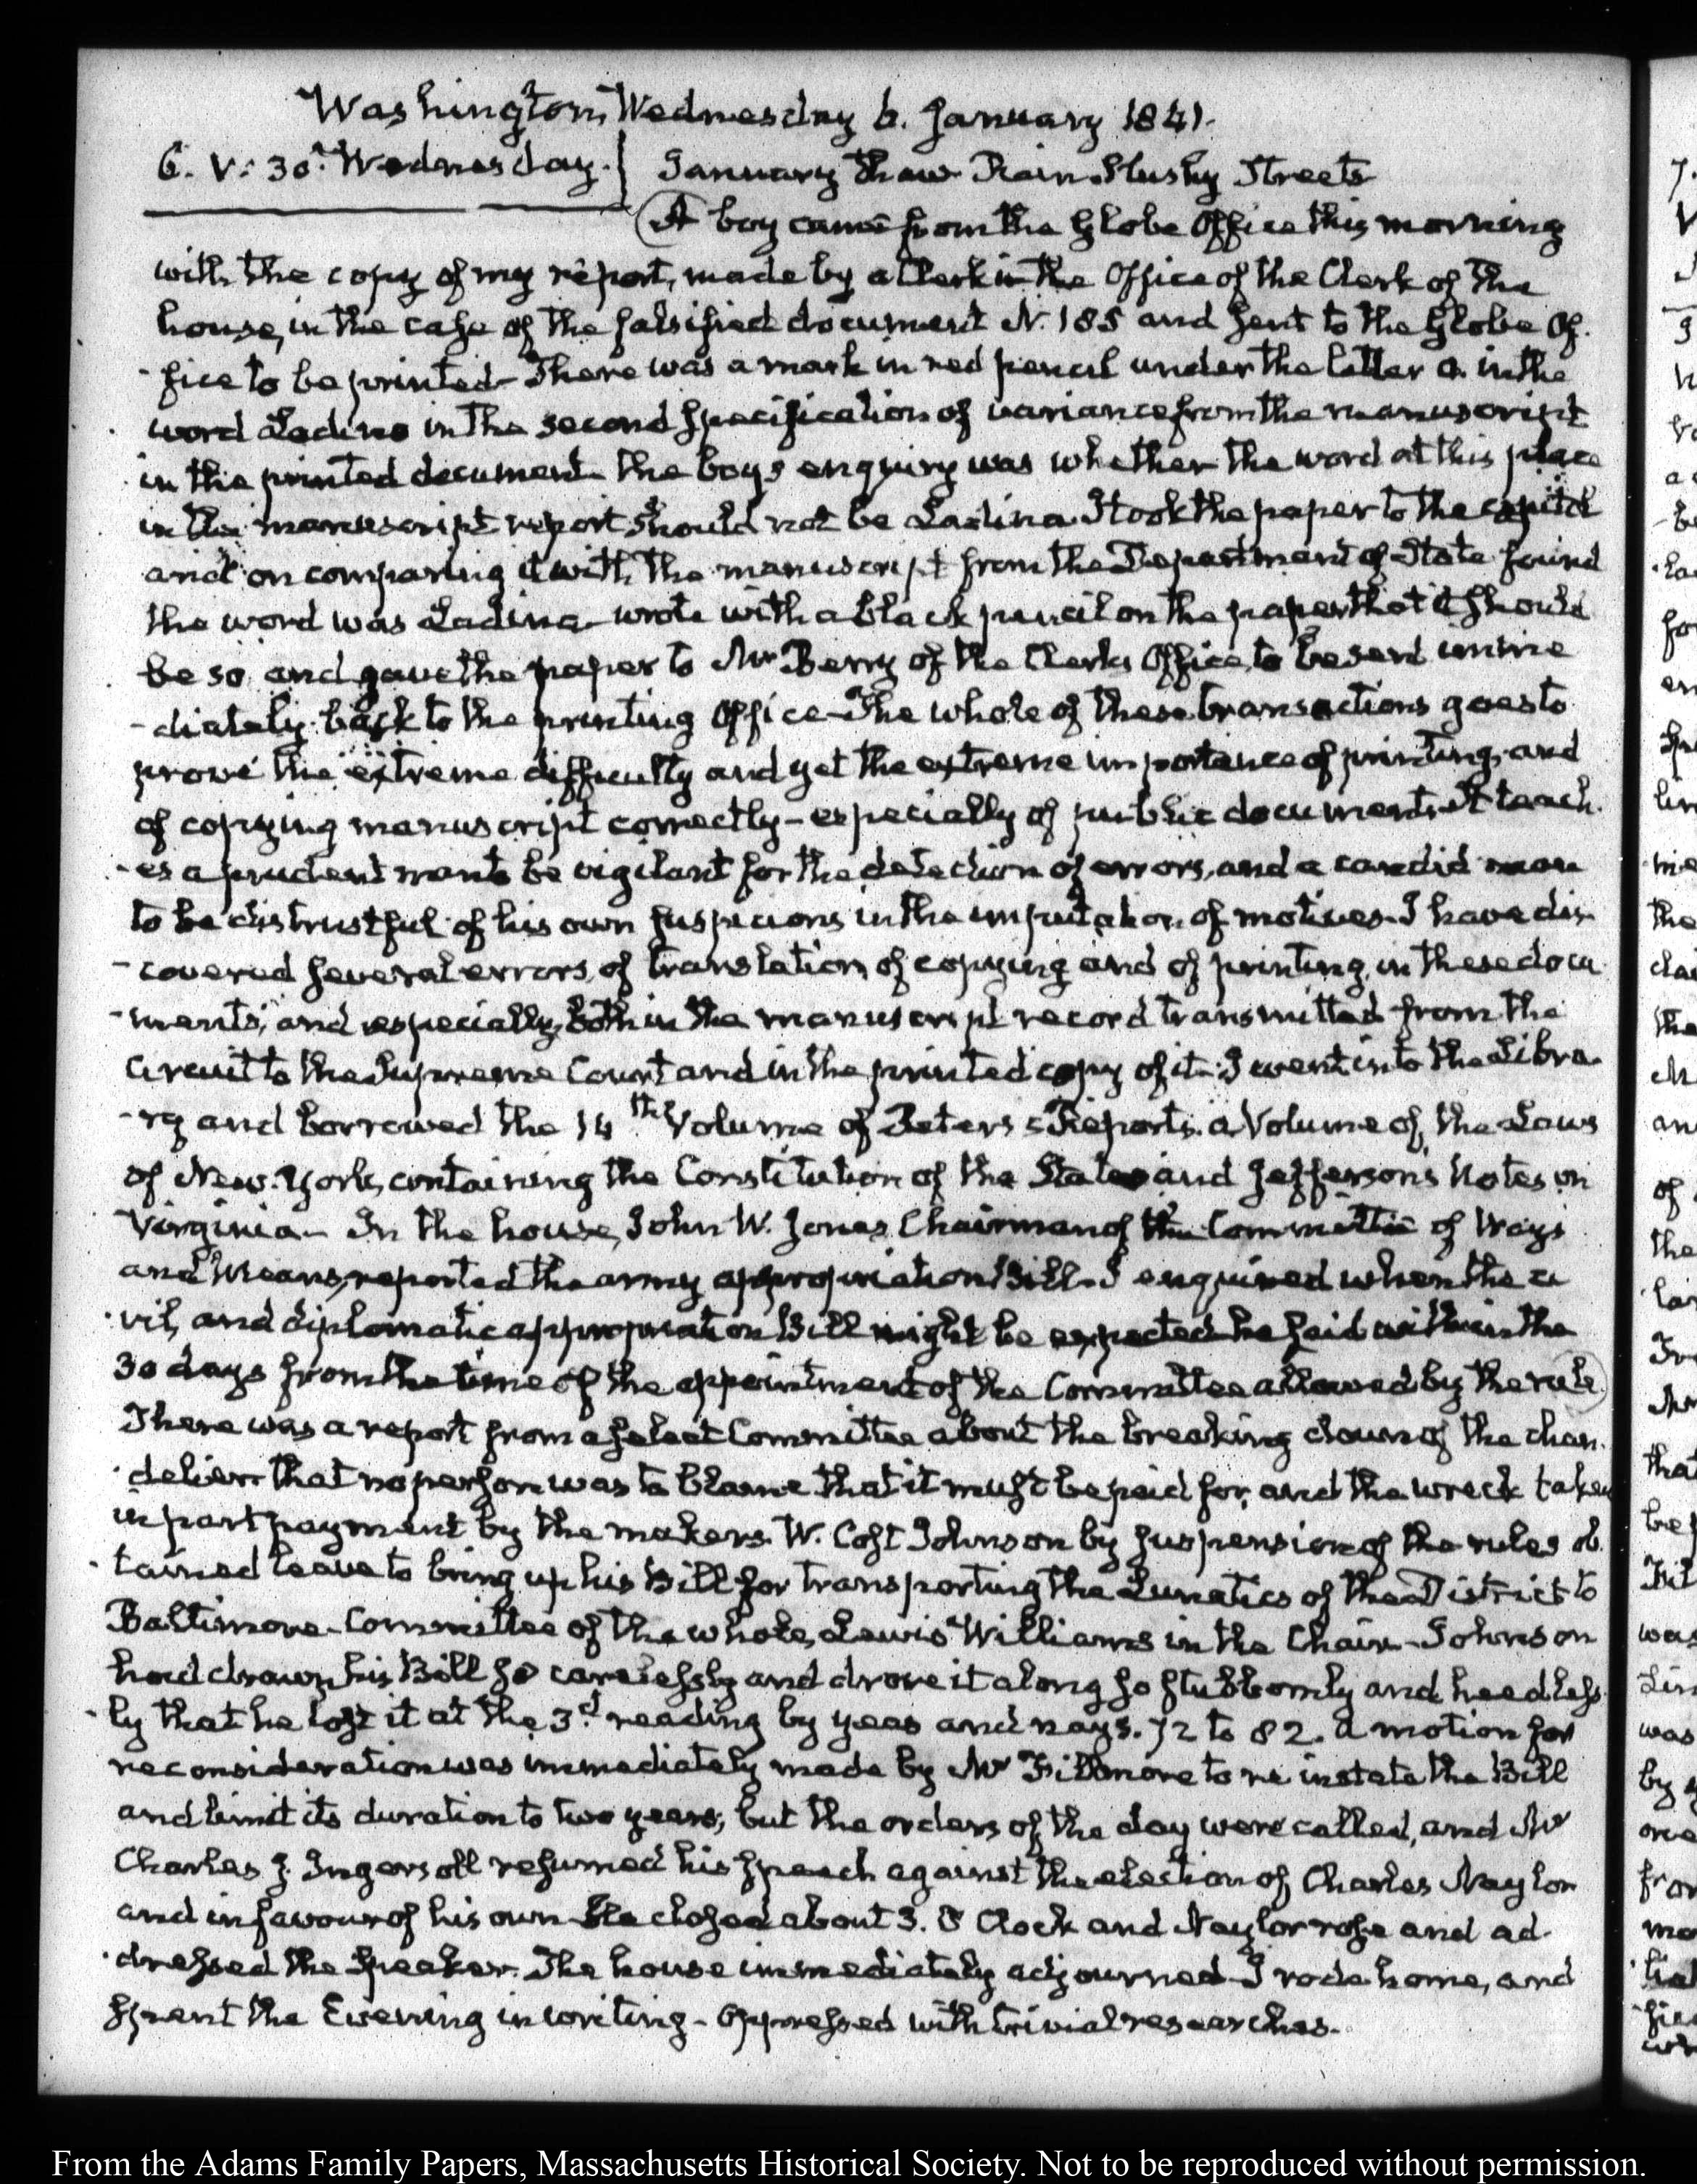 Washington, Wednesday 6. January 1841.
6. V: 30. Wednesday.} January thaw Rain. Slushy Streets
A boy came from the Globe Office this morning
with the copy of my report, made by a Clerk in the Office of the Clerk of the
house, in the case of the falsified document N. 185 and sent to the Globe Of-
-fice to be printed- There was a mark in red pencil under the letter o. in the
word Ladino in the second specification of variance from the manuscript
in the printed document- the boy's enquiry was whether the word at this place
in the manuscript report should not be Ladina. I took the paper to the capitol
and on comparing it with the manuscript from the Department of State found
the word was Ladina- wrote with a black pencil on the paper that it should
be so and gave the paper to Mr Berry of the Clerks Office, to be sent imme
-diately back to the printing Office- The whole of these transactions goes to
prove the extreme difficulty and yet the extreme importance of printing, and
of copying manuscript correctly- especially of public documents. It teach-
-es a prudent man to be vigilant for the detection of errors, and a candid man
to be distrustful of his own suspicions in the imputation of motives- I have dis-
-covered several errors, of translation, of copying and of printing, in these docu-
-ments, and especially, both in the manuscript record transmitted from the
circuit to the Supreme Court and in the printed copy of it- I went into the Libra-
-ry and borrowed the 14th Volume of Peters's Reports. a Volume of the Laws
of New-York, containing the Constitution of the State and Jefferson's Notes on
Virginia- In the house, John W. Jones, Chairman of the Committee of Ways
and Means, reported the army appropriation Bill- I enquired when the ci
-vil, and diplomatic appropriation Bill might be expected he said within the
30 days from the time of the appointment of the Committee allowed by the rule.
There was a report from a select Committee about the breaking down of the chan-
-delier- that no person was to blame that it must be paid for, and the wreck taken
in part payment by the makers. W. Cost Johnson by suspension of the rules ob-
-tained leave to bring up his Bill for transporting the Lunatics of the District to
Baltimore- Committee of the whole, Lewis Williams in the Chair- Johnson
had drawn his Bill so carelessly and drove it along so stubbornly and heedless-
-ly that he lost it at the 3d reading by yeas and nays. 72 to 82. a motion for
reconsideration was immediately made by Mr Fillmore to re instate the Bill
and limit its duration to two years; but the orders of the day were called, and Mr
Charles J. Ingersoll resumed his speech against the election of Charles Naylor
and in favour of his own- He closed about 3. O Clock and Naylor rose and ad-
-dressed the Speaker. The house immediately adjourned- I rode home, and
spent the Evening in writing- Oppressed with trivial researches.
From the Adams Family Papers, Massachusetts Historical Society. Not to be reproduced without permission.